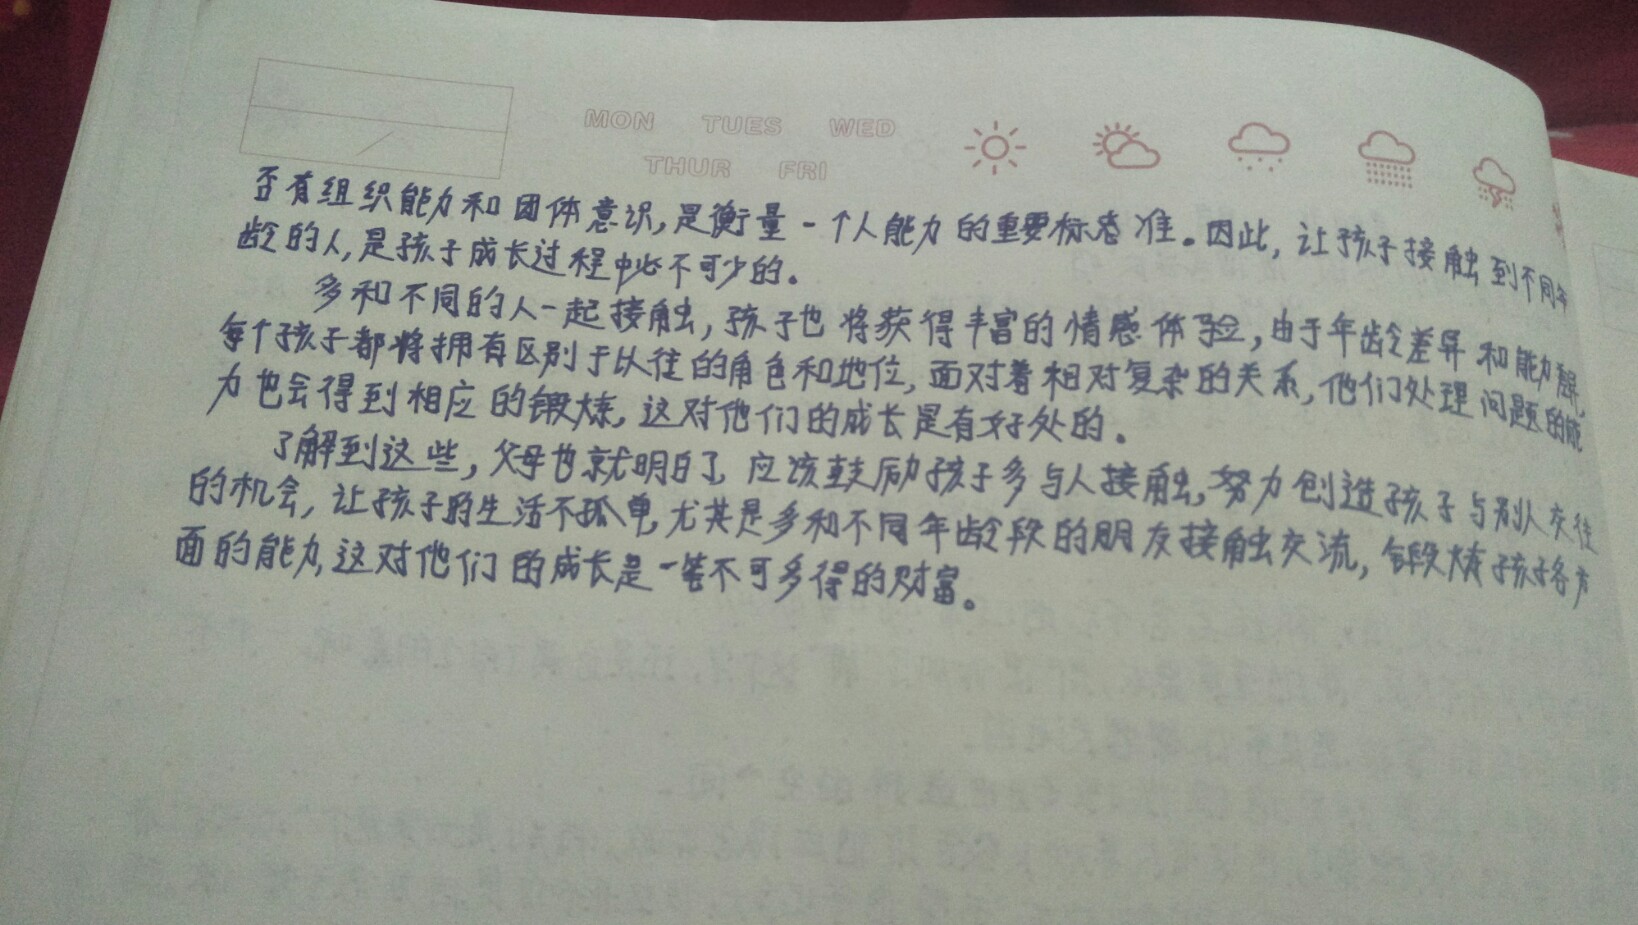 MON TUES WED
THUR FRI
否有组织能力和团体意识,是衡量一个人能力的重要标志准。因此,让孩子接触到不同年
龄的人,是孩子成长过程中必不可少的。
多和不同的人一起接触,孩子也将获得丰富的情感体验,由于年龄差异和能力
每个孩子都将拥有区别于以往的角色和地位,面对着相对复杂的关系,他们处理问题的能
力也会得到相应的锻炼,这对他们的成长是有好处的。
了解到这些,父母也就明白了,应该鼓励孩子多与人接触,努力创造孩子与别人交往
的机会,让孩子的生活不孤单,尤其是多和不同年龄段的朋友接触交流,锻炼孩子各方
面的能力,这对他们的成长是一笔不可多得的财富。